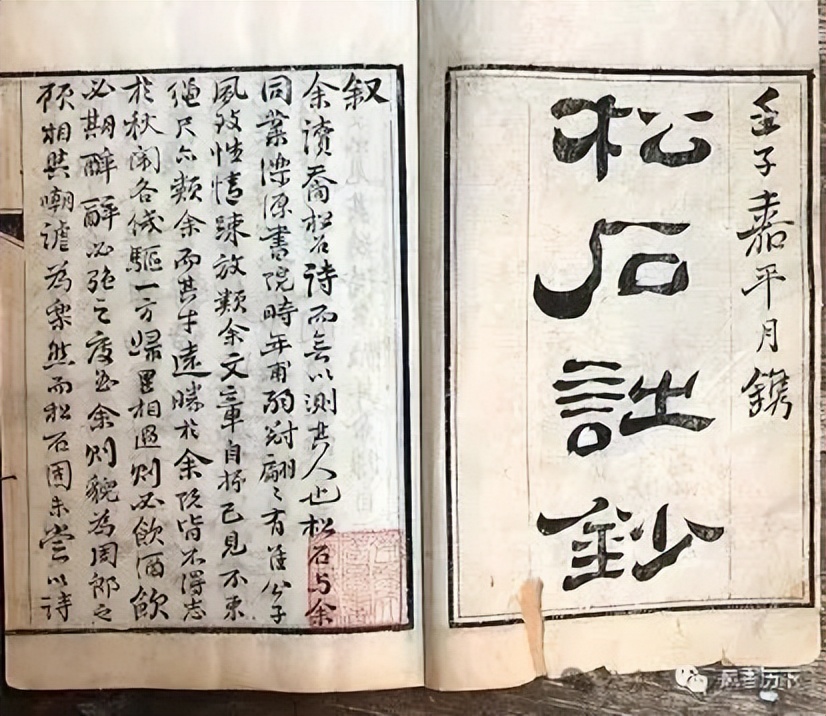 壬子嘉平月鐫
松石詩鈔
叙
余讀喬松石诗而無以测其人也松石与余
同業濼源書院時年甫弱冠翩々有佳公子
風致性情踈放類余文章自抒己見不束
繩尺亦類余而其才遠勝於余既皆不得志
於秋闈各饑驅一方歸里相遇則必飲酒飲
必期醉醉必强之度曲余则貌為周郎之
顾相與嘲謔為樂然而松石固未尝以詩